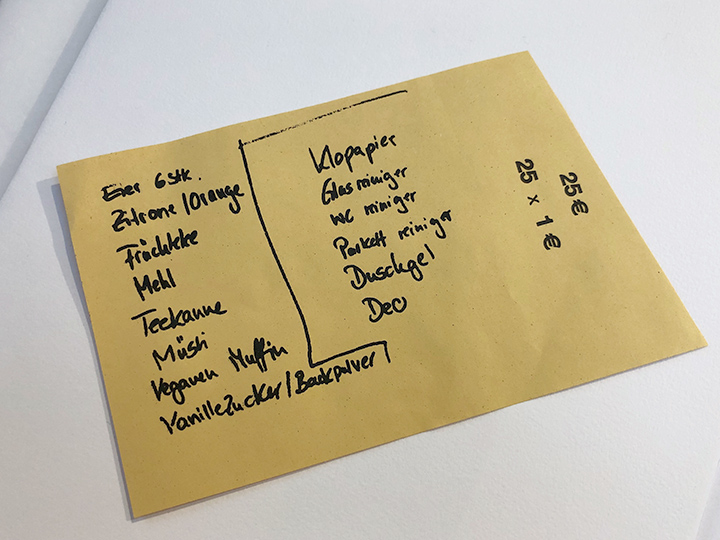 Eier 6 Stk.
Zitrone / Orange
Früchtete
Mehl
Teekanne
Müsli
Veganen Muffin
Vanillezucker / Backpulver
Klopapier
Glasreiniger
WC reiniger
Parkett reiniger
Duschgel
Deo
25 €
25 x 1 €